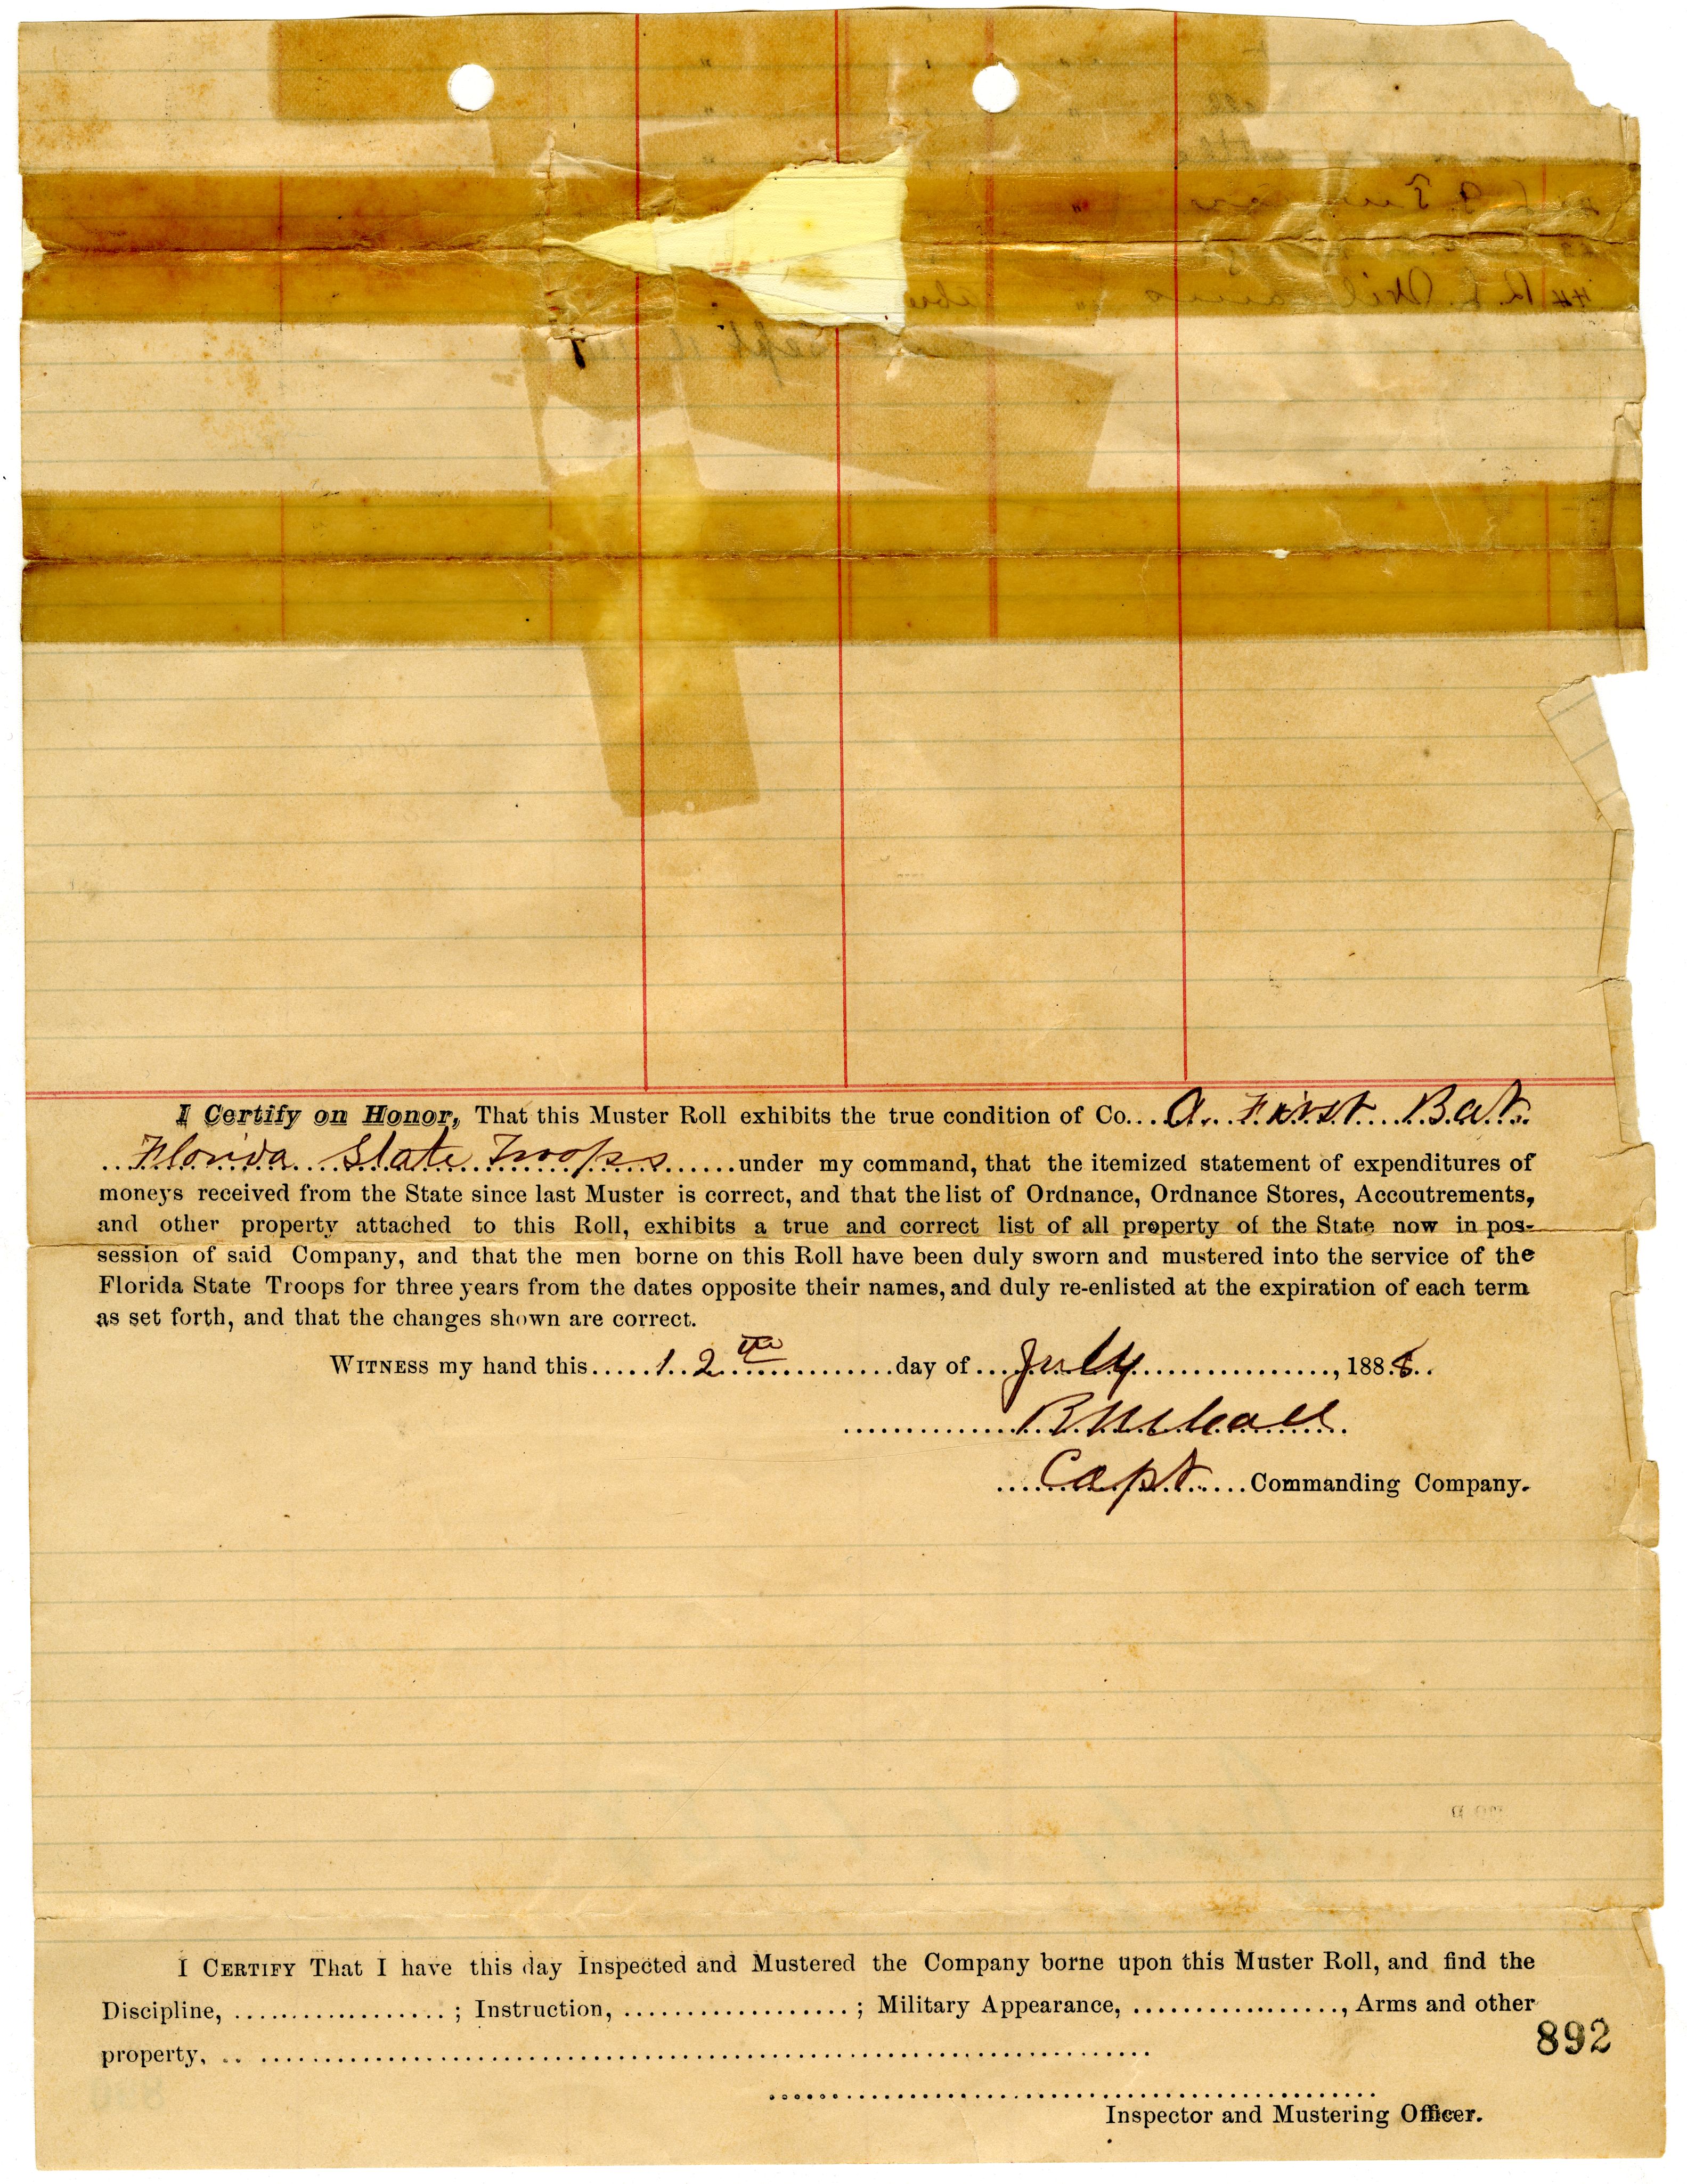 I Certify on Honor, That this Muster Roll exhibits the true condition of Co... A. First Bat.
Florida State Troops ......under my command, that the itemized statement of expenditures of
moneys received from the State since last Muster is correct, and that the list of Ordnance, Ordnance Stores, Accoutrements,
and other property attached to this Roll, exhibits a true and correct list of all property of the State now in pos-
session of said Company, and that the men borne on this Roll have been duly sworn and mustered into the service of the
Florida State Troops for three years from the dates opposite their names, and duly re-enlisted at the expiration of each term
as set forth, and that the changes shown are correct.
WITNESS my hand this.....12th............day of...July................, 1888..
Capt.....Commanding Company.
I CERTIFY That I have this day Inspected and Mustered the Company borne upon this Muster Roll, and find the
Discipline, ..................; Instruction, ...................; Military Appearance, .................., Arms and other
property, .. ........................................................................
892
Inspector and Mustering Officer.